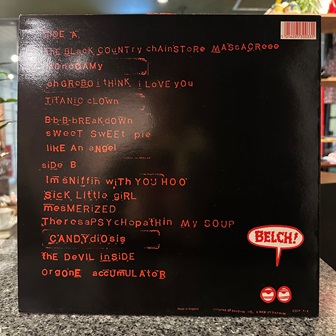 SiDE A
THE BLaCK COUNtRY cHAiNSTORe MASSACREee
MONOGAMY
oh GREBO i tHiNK i LOVE yOU
TiTANiC cLOWN
B-b-B-bREAKdOWN
sWeeT SWEEt pie
liKE An aNgel
siDE B
Im SNiFFiN wiTH YOU HOO
SiCK LittLe GiRL
meSMERiZED
TheresaPSYCHopaThiN MY SOUP
CANDYdiOSis
tHE DeViL iNSiDE
orgoNE aCCuMULAtoR
BELCH!